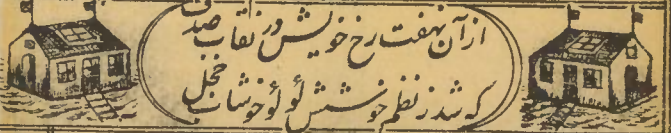 از آن نهفت رخ خویش در نقاب صدف
که شد ز نظم خوشش لؤلؤ خوشاب خجل